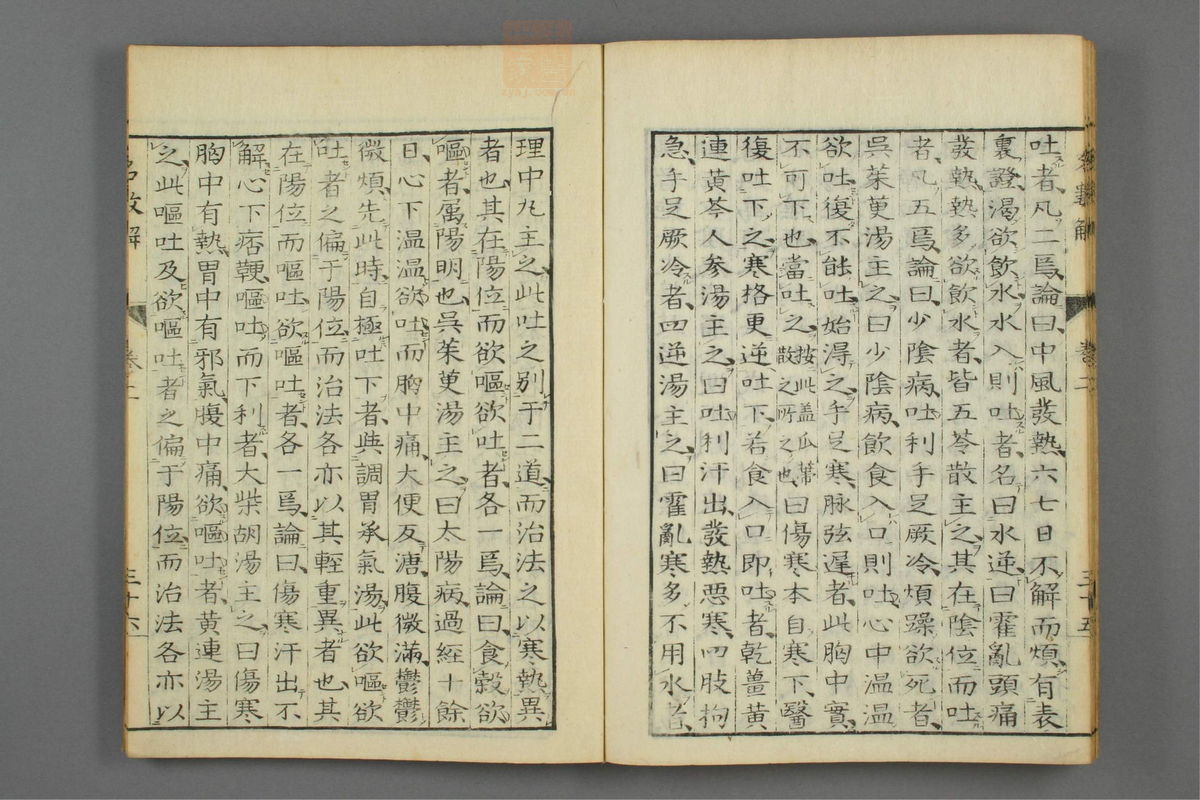 吐者凡二焉論曰中風發熱六七日不解而煩有表
裏證渴欲飲水水入則吐者名曰水逆曰霍亂頭痛
發熱熱多欲飲水者皆五苓散主之其在陰位而吐
者凡五焉論曰少陰病吐利手足厥冷煩躁欲死者
吳茱萸湯主之曰少陰病飲食入口則吐心中温温
欲吐復不能吐始淂之手足寒脉弦遲者此胸中實
不可下也當吐之按此盖瓜蒂散之所之也曰傷寒本自寒下醫
復吐下之寒格更逆吐下若食入口即吐者乾薑黄
連黄芩人参湯主之曰吐利汗出發熱惡寒四肢拘
急手足厥冷者四逆湯主之曰霍亂寒多不用水者
卷二
三十五
理中丸主之此吐之別于二道而治法之以寒熱異
者也其在陽位而欲嘔欲吐者各一焉論曰食穀欲
嘔者属陽明也吳茱萸湯主之曰太陽病過經十餘
日心下温温欲吐而胸中痛大便反溏腹微滿鬱鬱
微煩先此時自極吐下者與調胃承氣湯此欲嘔欲
吐者之偏于陽位而治法各亦以其輕重異者也其
在陽位而嘔吐欲嘔吐者各一焉論曰傷寒汗出不
解心下痞鞕嘔吐而下利者大柴胡湯主之曰傷寒
胸中有熱胃中有邪氣腹中痛欲嘔吐者黄連湯主
之此嘔吐及欲嘔吐者之偏于陽位而治法各亦以
三十六